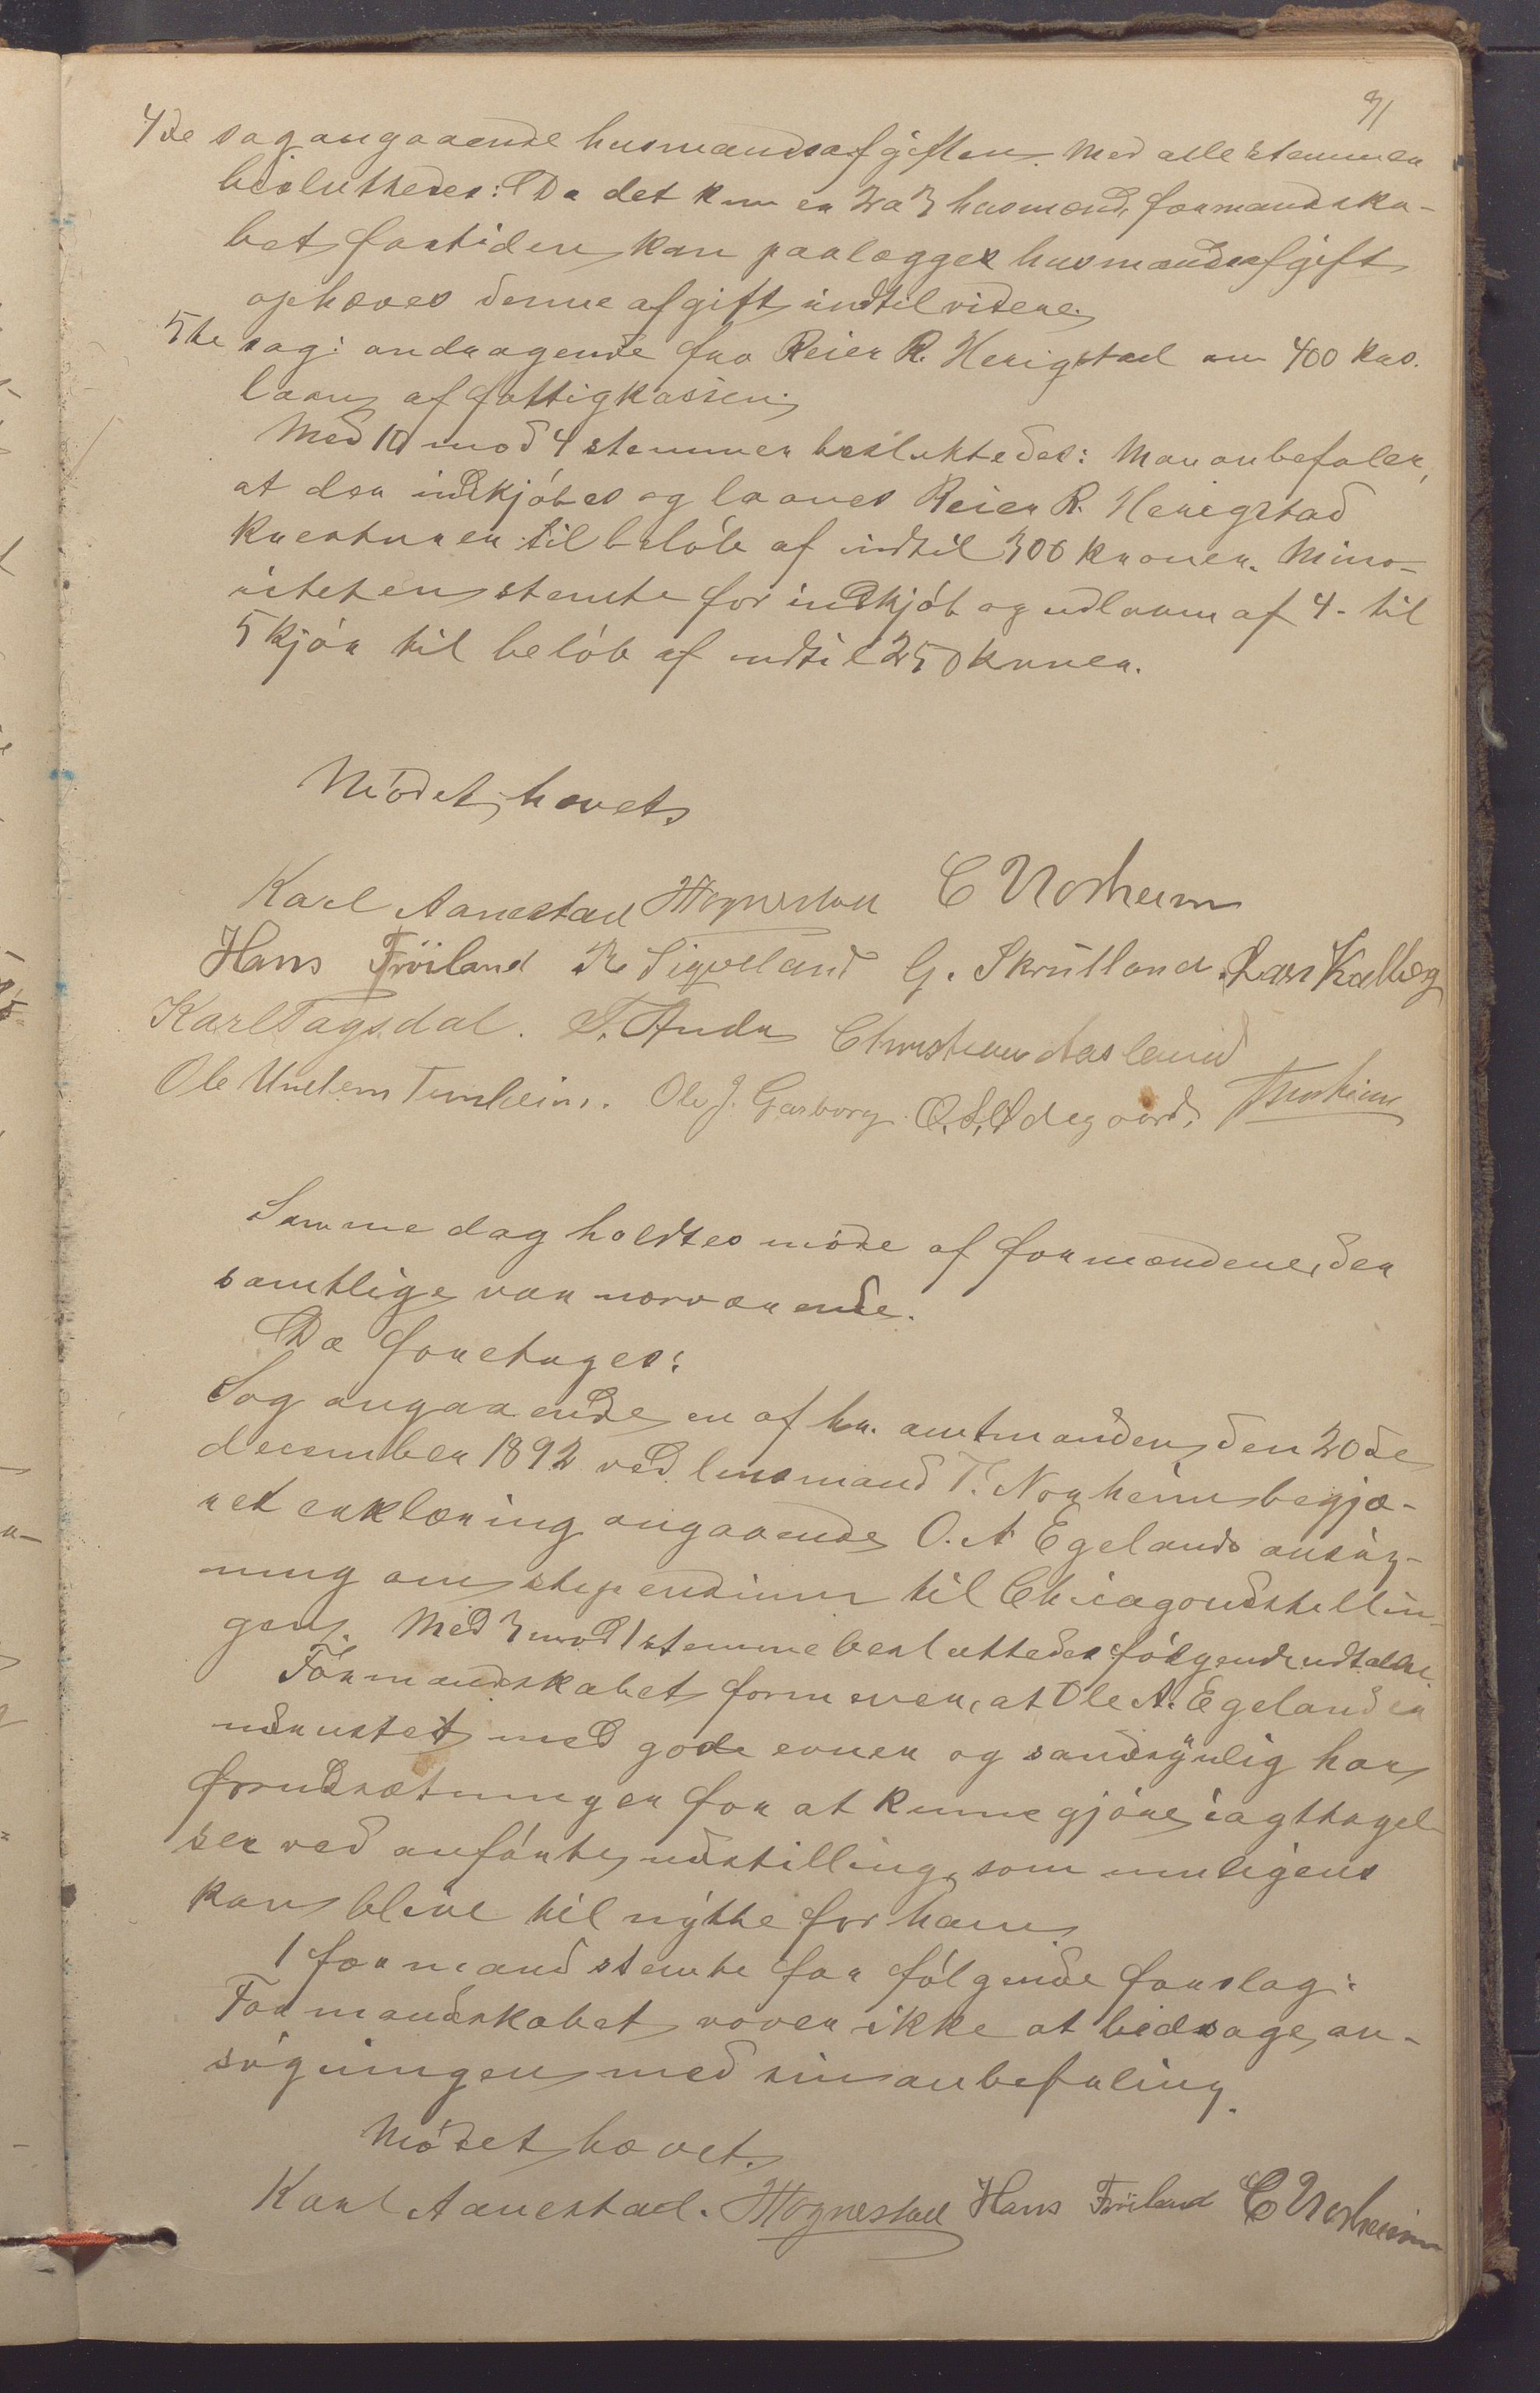 91
4de sag angaaende husmandsafgiften. Med alle stemmer
besluttedes: Da det kun er 2 a 3 husmænd, formandska-
bet fortiden kan paalægges husmandsafgift
ophæves denne afgift indtil videre.
5te sag: andragende fra Reier R. Herigstad om 400 krs.
laan af fattigkassen.
Med 10 mod 4 stemmer besluttedes: Man anbefaler,
at der indkjöbes og laanes Reier R. Herigstad
kreaturer til belöb af indtil 300 kroner. Mino-
riteten stemte for indkjöb og udlaan af 4- til
5 kjör til belöb af indtil 250 kroner.
Mödet hævet.
Karl Aanestad Hognestad C Norheim
Hans Fröiland R Sigveland G. Skrutland. Lars Kalberg
Karl Tagsdal. T. Anda Christian Aasland
Ole Undem Tunheim. Ole J. Garborg. O. S. Ødegaard. Norheim
Samme dag holdtes möde af formændene, der
samtlige var nærværende.
Da foretoges:
Sag angaaende en af hr. amtmanden den 20de
december 1892 ved lensmand T. Norheim begjæ-
ret erklæring angaaende O. A. Egelands ansög-
ning om stipendium til Chicagoudstillin-
gen. Med 3 mod 1 stemme besluttedes fölgende udtalelse.
Formandskabet formener, at Ole A. Egeland er
udrustet med gode evner og sandsynlig har
forudsætninger for at kunne gjöre iagttagel-
ser ved anförte udstilling, som muligens
kan blive til nytte for ham.
1 formand stemte for fölgende forslag:
Formandskabet vover ikke at ledsage an-
sögningen med sin anbefaling.
Mödet hævet.
Karl Aanestad. Hognestad Hans Fröiland C Norheim